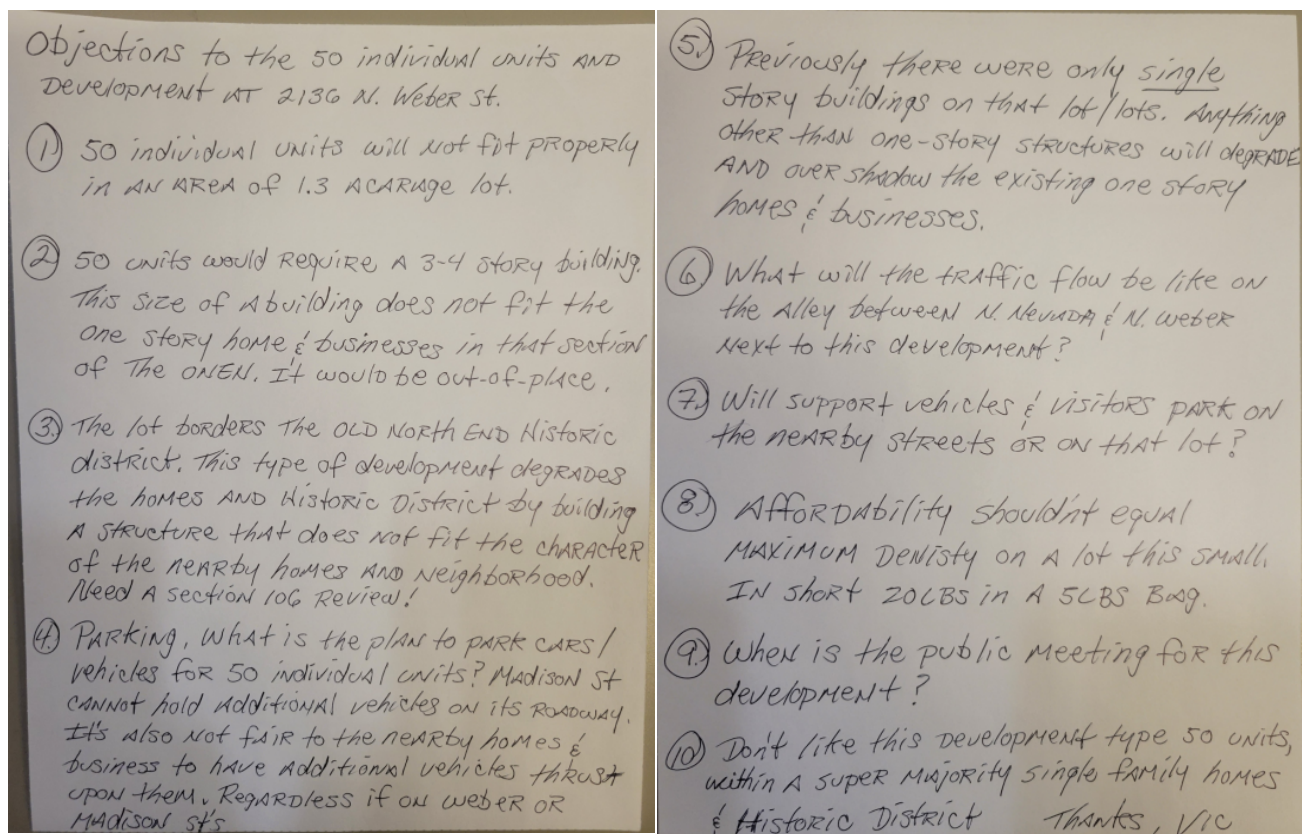 Objections to the 50 individual units AND
Development AT 2136 N. Weber St.
1.) 50 individual units will not fit properly
in AN AREA of 1.3 ACARIAGE lot.
2.) 50 units would Require A 3-4 story building.
This size of A building does not fit the
one story home & businesses in that section
of The ONEN. It would be out-of-place.
3.) The lot borders The OLD NORTH END Historic
district. This type of development degrades
the homes AND Historic District by building
A structure that does not fit the character
of the nearby homes AND Neighborhood.
Need A section 106 Review!
4.) PARKING, What is the plan to park cars/
vehicles for 50 individual units? Madison St
cannot hold additional vehicles on its roadway.
It's also not fair to the nearby homes &
business to have additional vehicles thrust
upon them. Regardless if on Weber OR
Madison St's
5.) Previously there were only single
story buildings on that lot/lots. Anything
other than one-story structures will degrade
AND over shadow the existing one story
homes & businesses.
6.) What will the traffic flow be like on
the Alley between N. Nevada & N. Weber
Next to this development?
7.) Will support vehicles & visitors park on
the nearby streets or on that lot?
8.) Affordability shouldn't equal
MAXIMUM Denisty on A lot this small.
IN short 20LBS in A 5LBS Bag.
9.) When is the public meeting for this
development?
10.) Don't like this Development type 50 units,
within A super majority single family homes
& Historic District Thanks, Vic